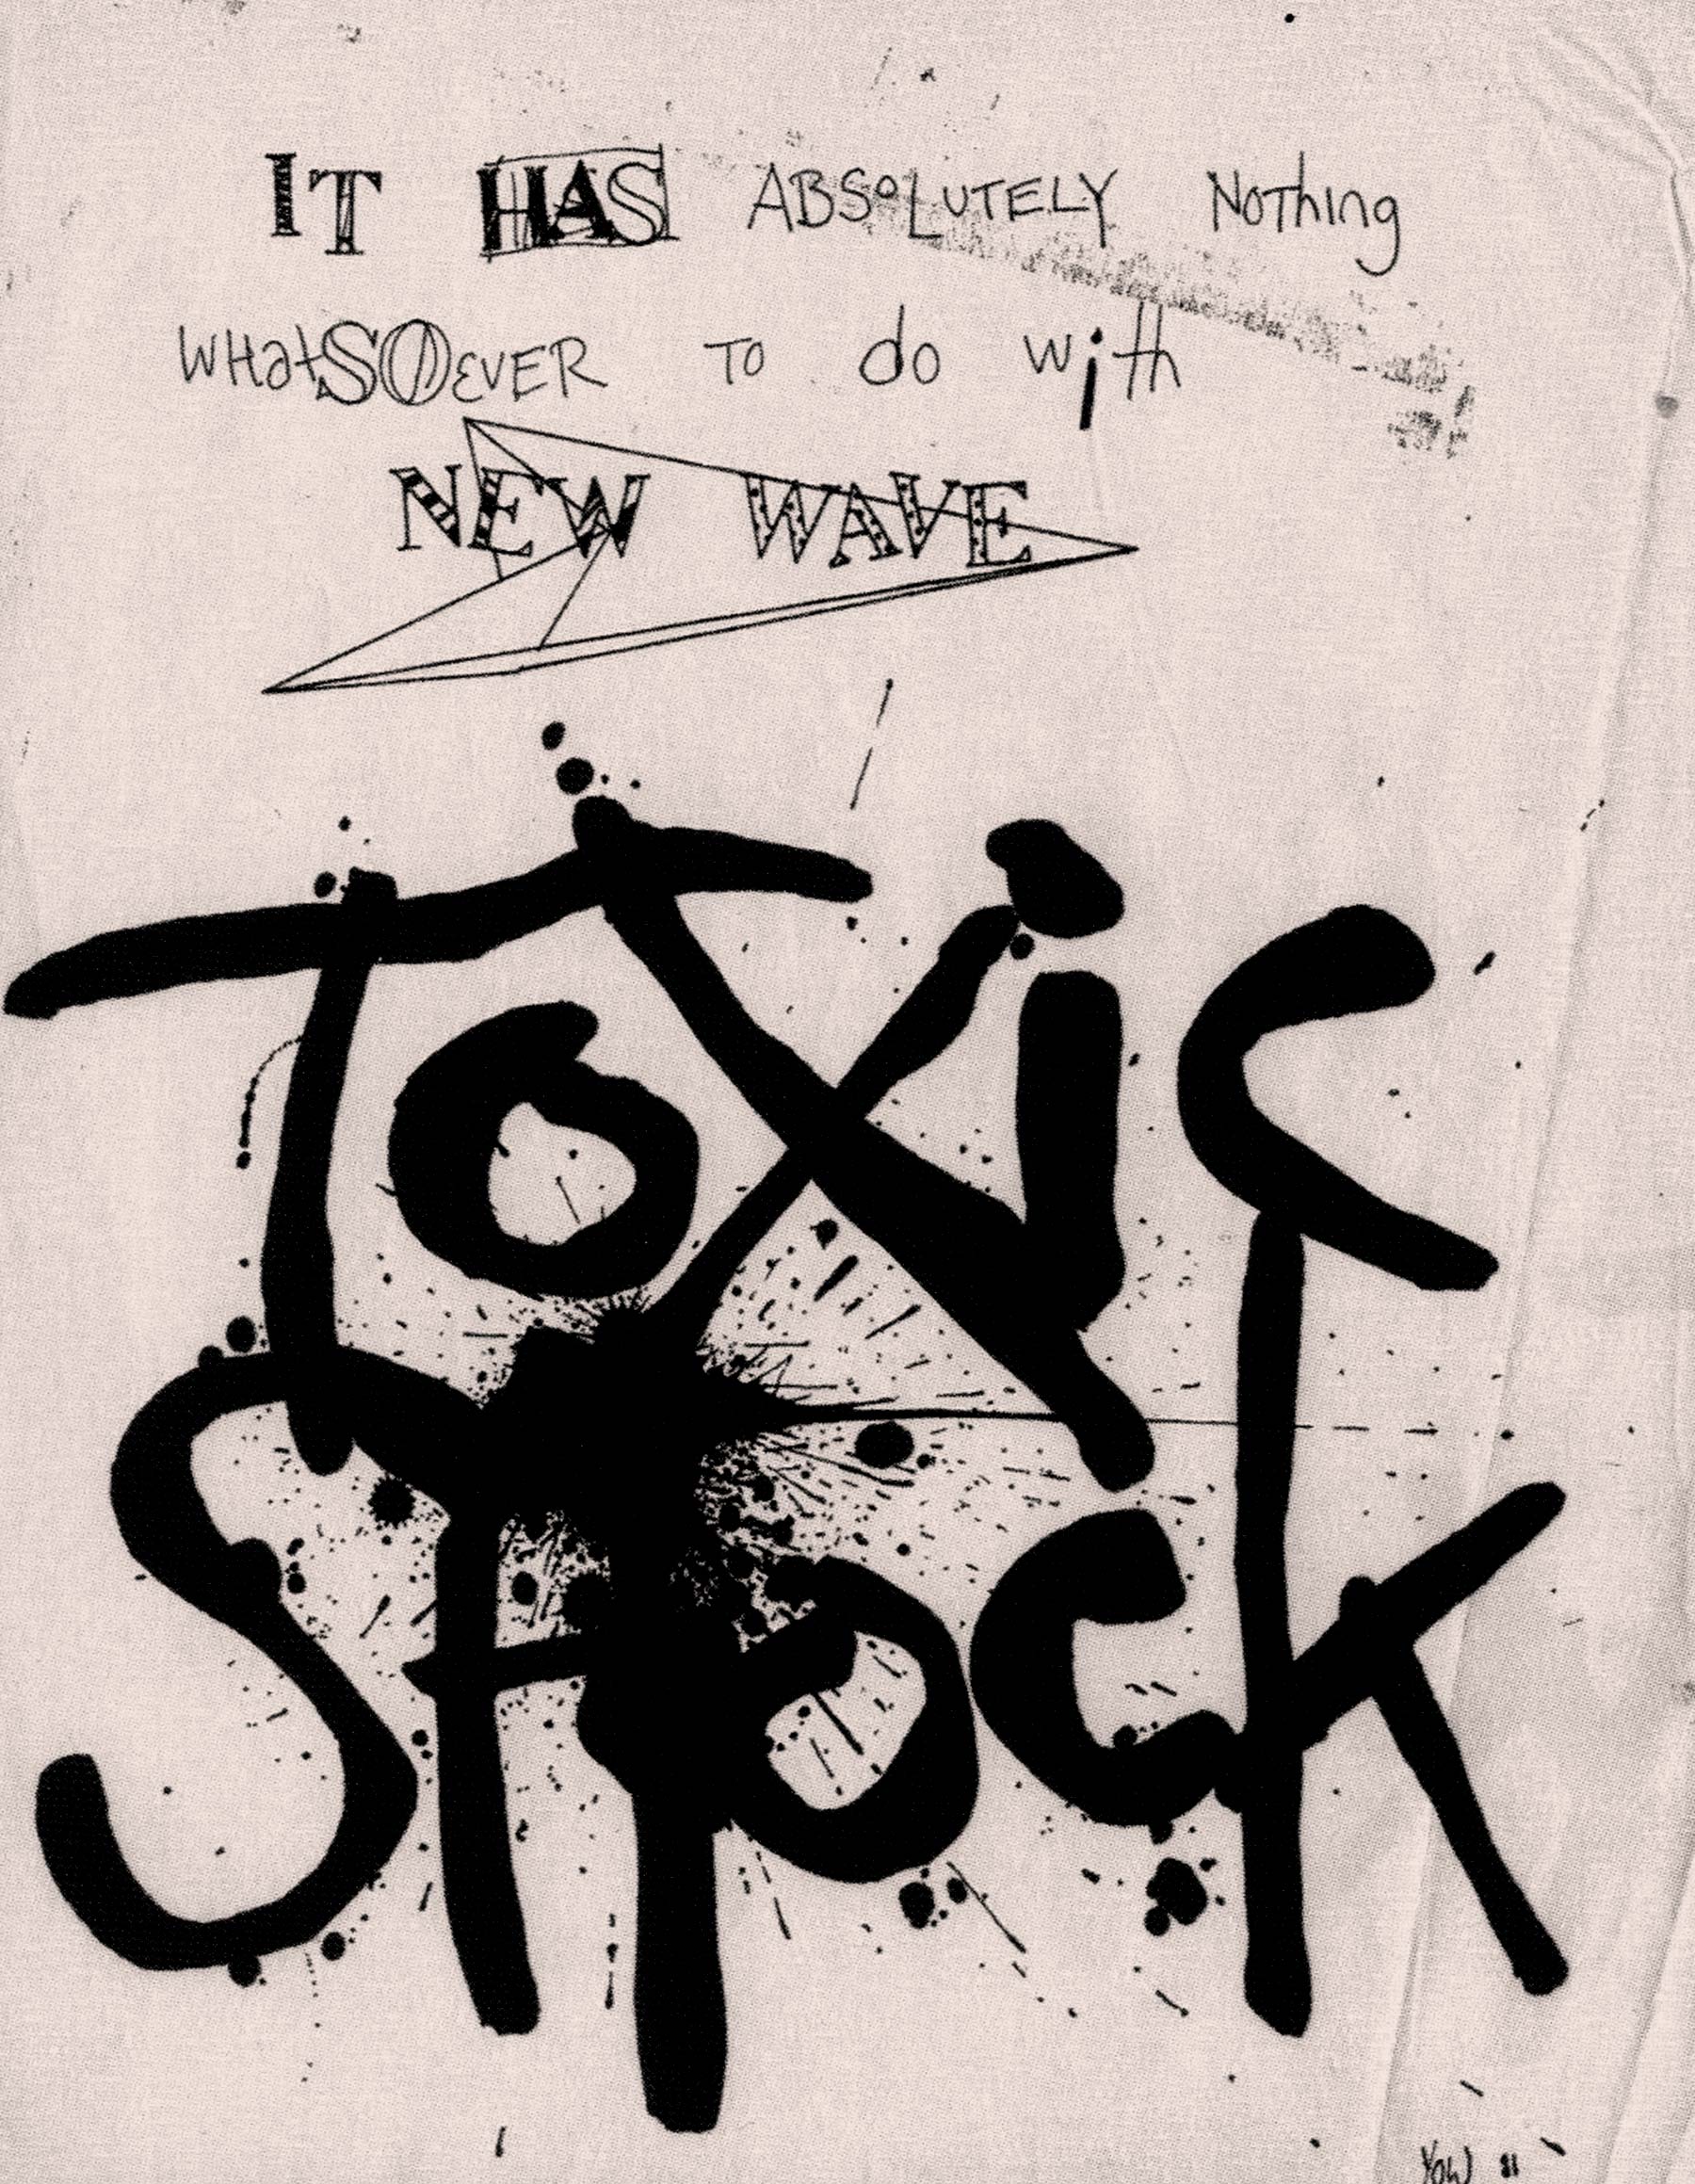 IT HAS ABSOLUTELY NOthing
WHatSOEVER TO do with
NEW WAVE
ToXiC
SHock
YOW